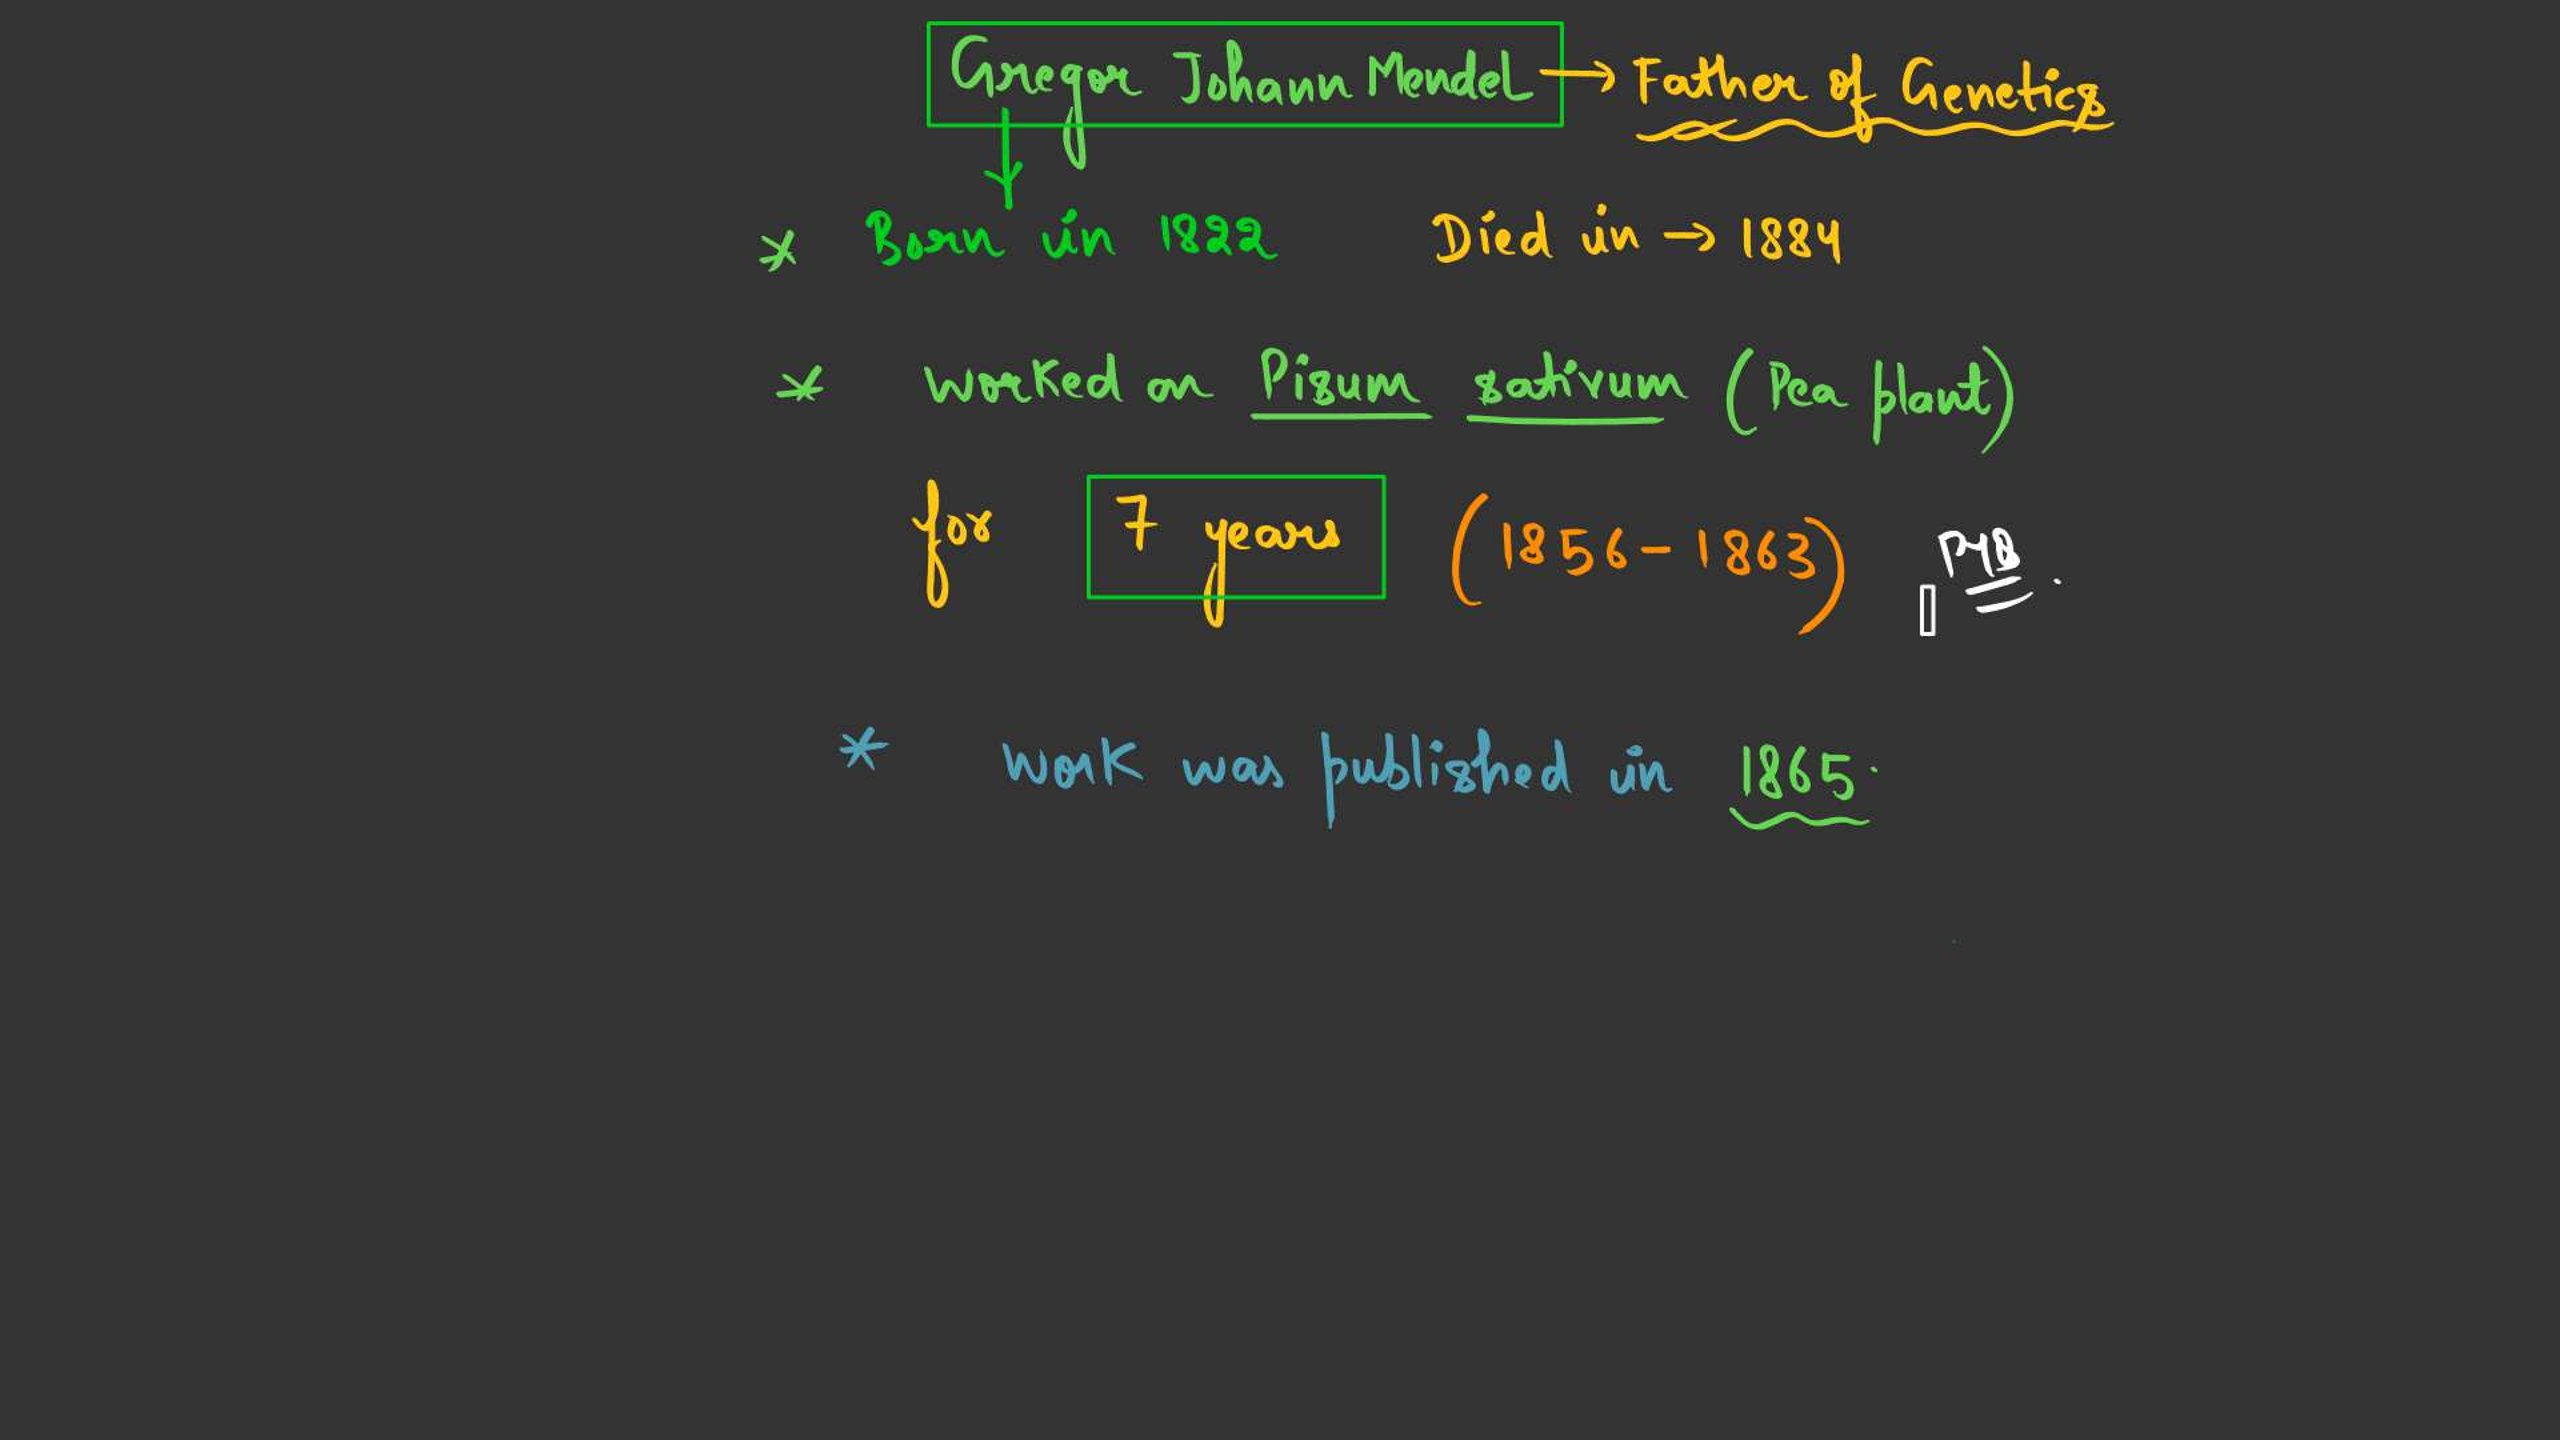 Gregor Johann Mendel → Father of Genetics
* Born in 1822 Died in → 1884
* Worked on Pisum sativum (Pea plant)
for 7 years (1856-1863) PYQ.
* Work was published in 1865.